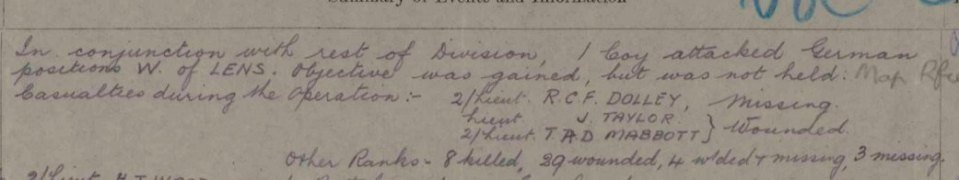 Summary of Events and Information
In conjunction with rest of Division, 1 Coy attacked German
positions W. of LENS. Objective was gained, but was not held: Map
Casualties during the Operation:- 2/Lieut. R.C.F. DOLLEY, Missing.
Lieut. J. TAYLOR
2/Lieut. T.A.D MABBOTT } Wounded.
Other Ranks - 8 killed, 29 wounded, 4 w'ded & missing, 3 missing.
2/Lieut